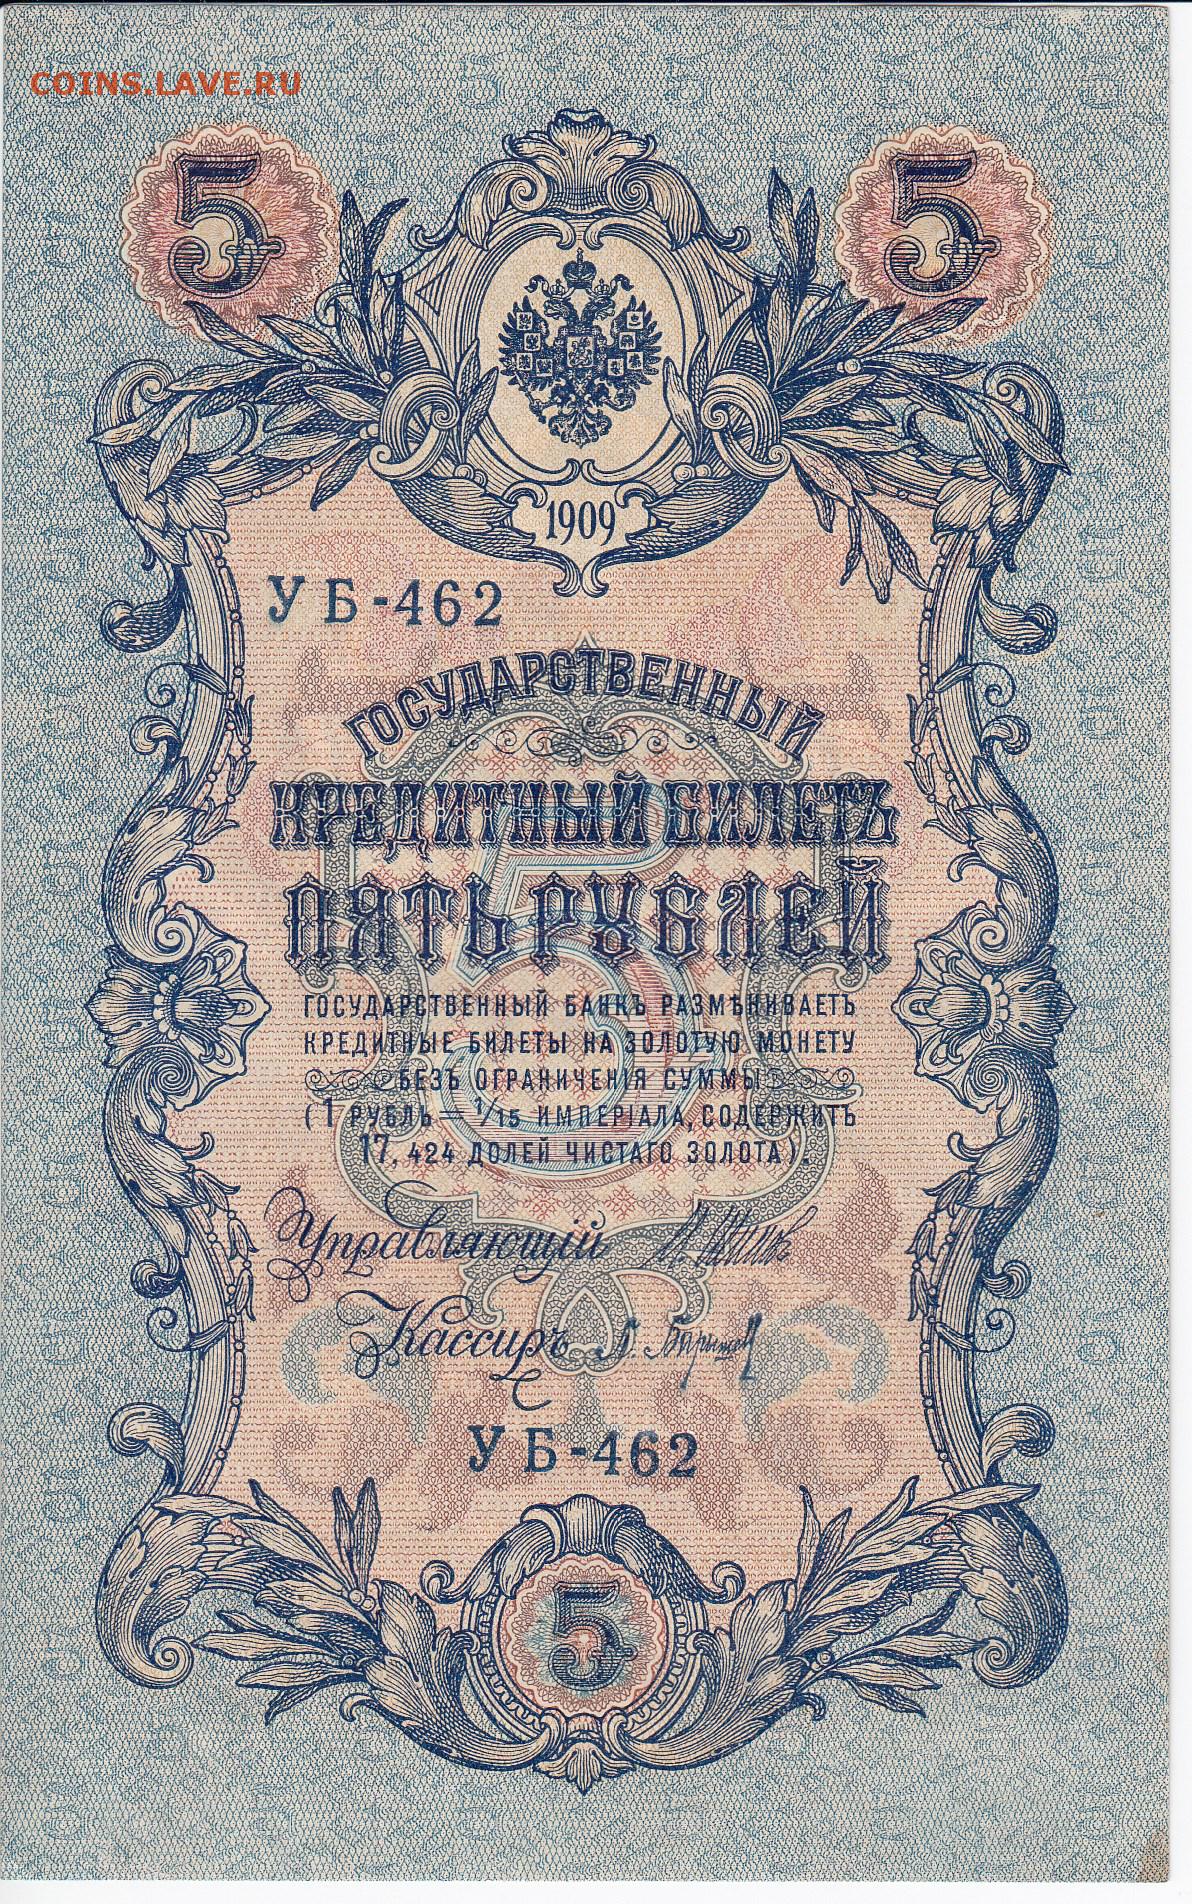 COINS.LAVE.RU
5 5
1909
УБ-462
ГОСУДАРСТВЕННЫЙ
КРЕДИТНЫЙ БИЛЕТЪ
ПЯТЬ РУБЛЕЙ
5
ГОСУДАРСТВЕННЫЙ БАНКЪ РАЗМѢНИВАЕТЪ
КРЕДИТНЫЕ БИЛЕТЫ НА ЗОЛОТУЮ МОНЕТУ
БЕЗЪ ОГРАНИЧЕНІЯ СУММЫ
(1 РУБЛЬ = 1/15 ИМПЕРІАЛА, СОДЕРЖИТЪ
17,424 ДОЛЕЙ ЧИСТАГО ЗОЛОТА).
Управляющій
Кассиръ
УБ-462
5